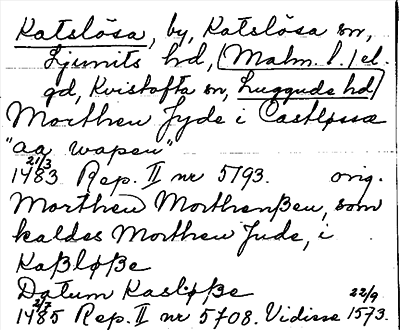 Katslösa, by, Katslösa sn,
Ljunits hd, (Malm. l.) el.
gd, Kvistofta sn, Luggude hd
Morthen Jyde i Castløssæ
"aa wapen"
21/3
1483 Rep. II nr 5193. orig.
Morthen Morthenßen, som
kaldes Morthen Jude, i
Kaßløße
Datum Kasløße
2/7 22/9
1485 Rep. II nr 5708. Vidisse 1573.